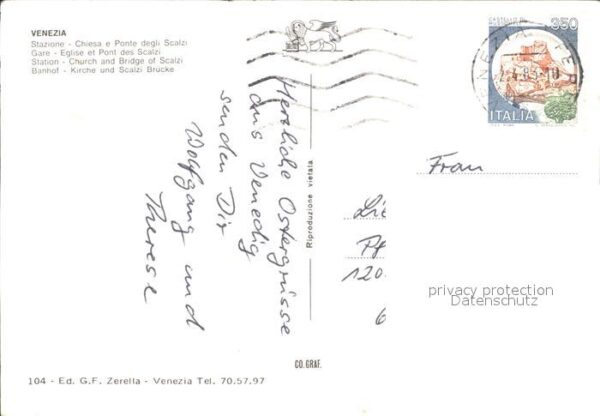 VENEZIA
Stazione - Chiesa e Ponte degli Scalzi
Gare - Eglise et Pont des Scalzi
Station - Church and Bridge of Scalzi
Banhof - Kirche und Scalzi Brücke
350
ITALIA
Herzliche Ostergrüsse
aus Venedig
senden Dir
Wolfgang und
Therese
Riproduzione vietata
Frau
Lie
Pf
120.
6
privacy protection
Datenschutz
CO.GRAF.
104 - Ed. G.F. Zerella - Venezia Tel. 70.57.97